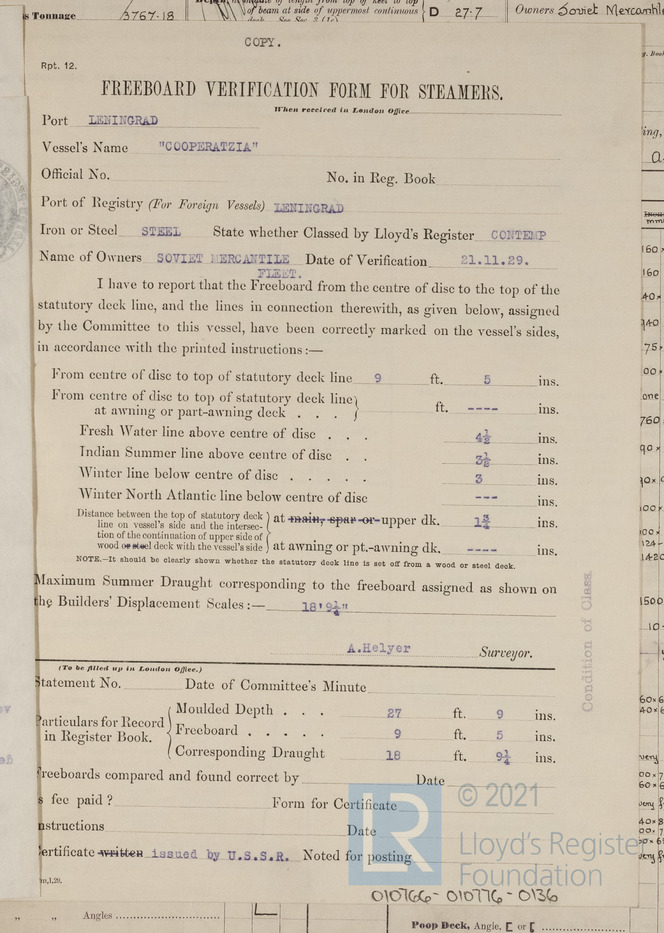 s Tonnage 3767.18
of beam at side of uppermost continuous
D 27.7
Owners Soviet Mercantile
COPY.
Rpt. 12.
FREEBOARD VERIFICATION FORM FOR STEAMERS.
When received in London Office
Port LENINGRAD
Vessel's Name "COOPERATZIA"
Official No. No. in Reg. Book
Port of Registry (For Foreign Vessels) LENINGRAD
Iron or Steel STEEL State whether Classed by Lloyd's Register CONTEMP
Name of Owners SOVIET MERCANTILE Date of Verification 21.11.29.
FLEET.
I have to report that the Freeboard from the centre of disc to the top of the
statutory deck line, and the lines in connection therewith, as given below, assigned
by the Committee to this vessel, have been correctly marked on the vessel's sides,
in accordance with the printed instructions:—
From centre of disc to top of statutory deck line 9 ft. 5 ins.
From centre of disc to top of statutory deck line
at awning or part-awning deck . . . ft. ---- ins.
Fresh Water line above centre of disc . . . 4½ ins.
Indian Summer line above centre of disc . . 3½ ins.
Winter line below centre of disc . . . . . 3 ins.
Winter North Atlantic line below centre of disc --- ins.
Distance between the top of statutory deck
line on vessel's side and the intersec-
tion of the continuation of upper side of
wood or steel deck with the vessel's side
at main, spar or upper dk. 1¾ ins.
at awning or pt.-awning dk. ---- ins.
NOTE.—It should be clearly shown whether the statutory deck line is set off from a wood or steel deck.
Maximum Summer Draught corresponding to the freeboard assigned as shown on
the Builders' Displacement Scales :— 18'9¼"
A.Helyer Surveyor.
(To be filled up in London Office.)
Statement No. Date of Committee's Minute
Particulars for Record
in Register Book.
Moulded Depth . . . 27 ft. 9 ins.
Freeboard . . . . . 9 ft. 5 ins.
Corresponding Draught 18 ft. 9¼ ins.
Freeboards compared and found correct by Date
s fee paid ? Form for Certificate
nstructions Date
ertificate written issued by U.S.S.R. Noted for posting
m,1,29.
Condition of Class
© 2021
LR
Lloyd's Register
Foundation
010766-010776-0136
„ „ Angles
Poop Deck, Angle, [ or [